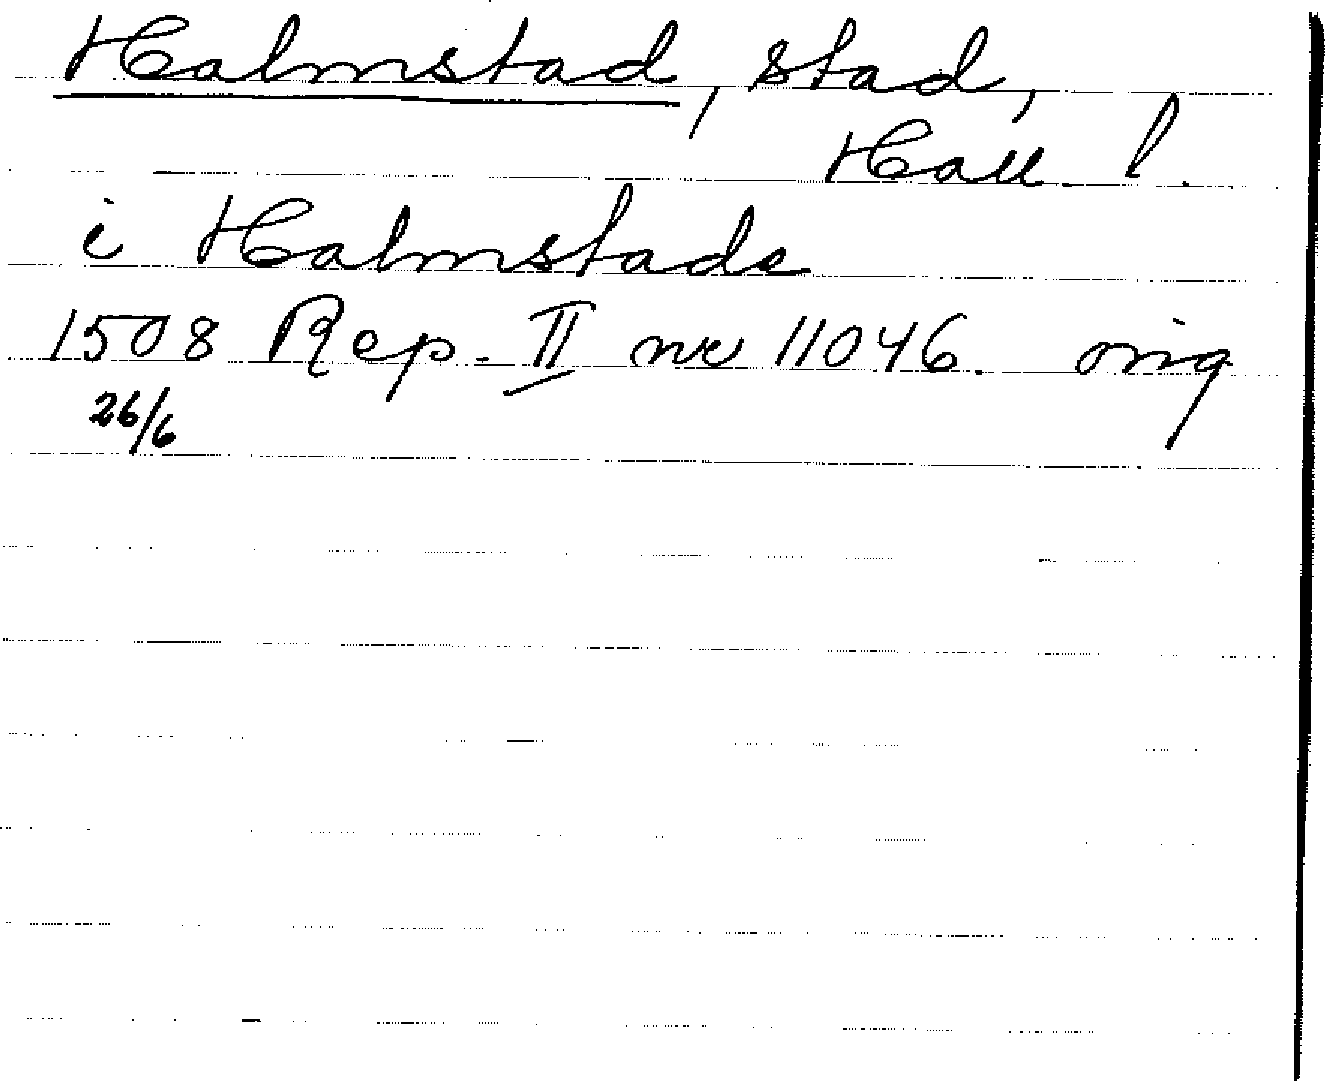 Halmstad, stad,
Hall l.
i Halmstads
1508 Rep. II nr 11046. orig
26/6